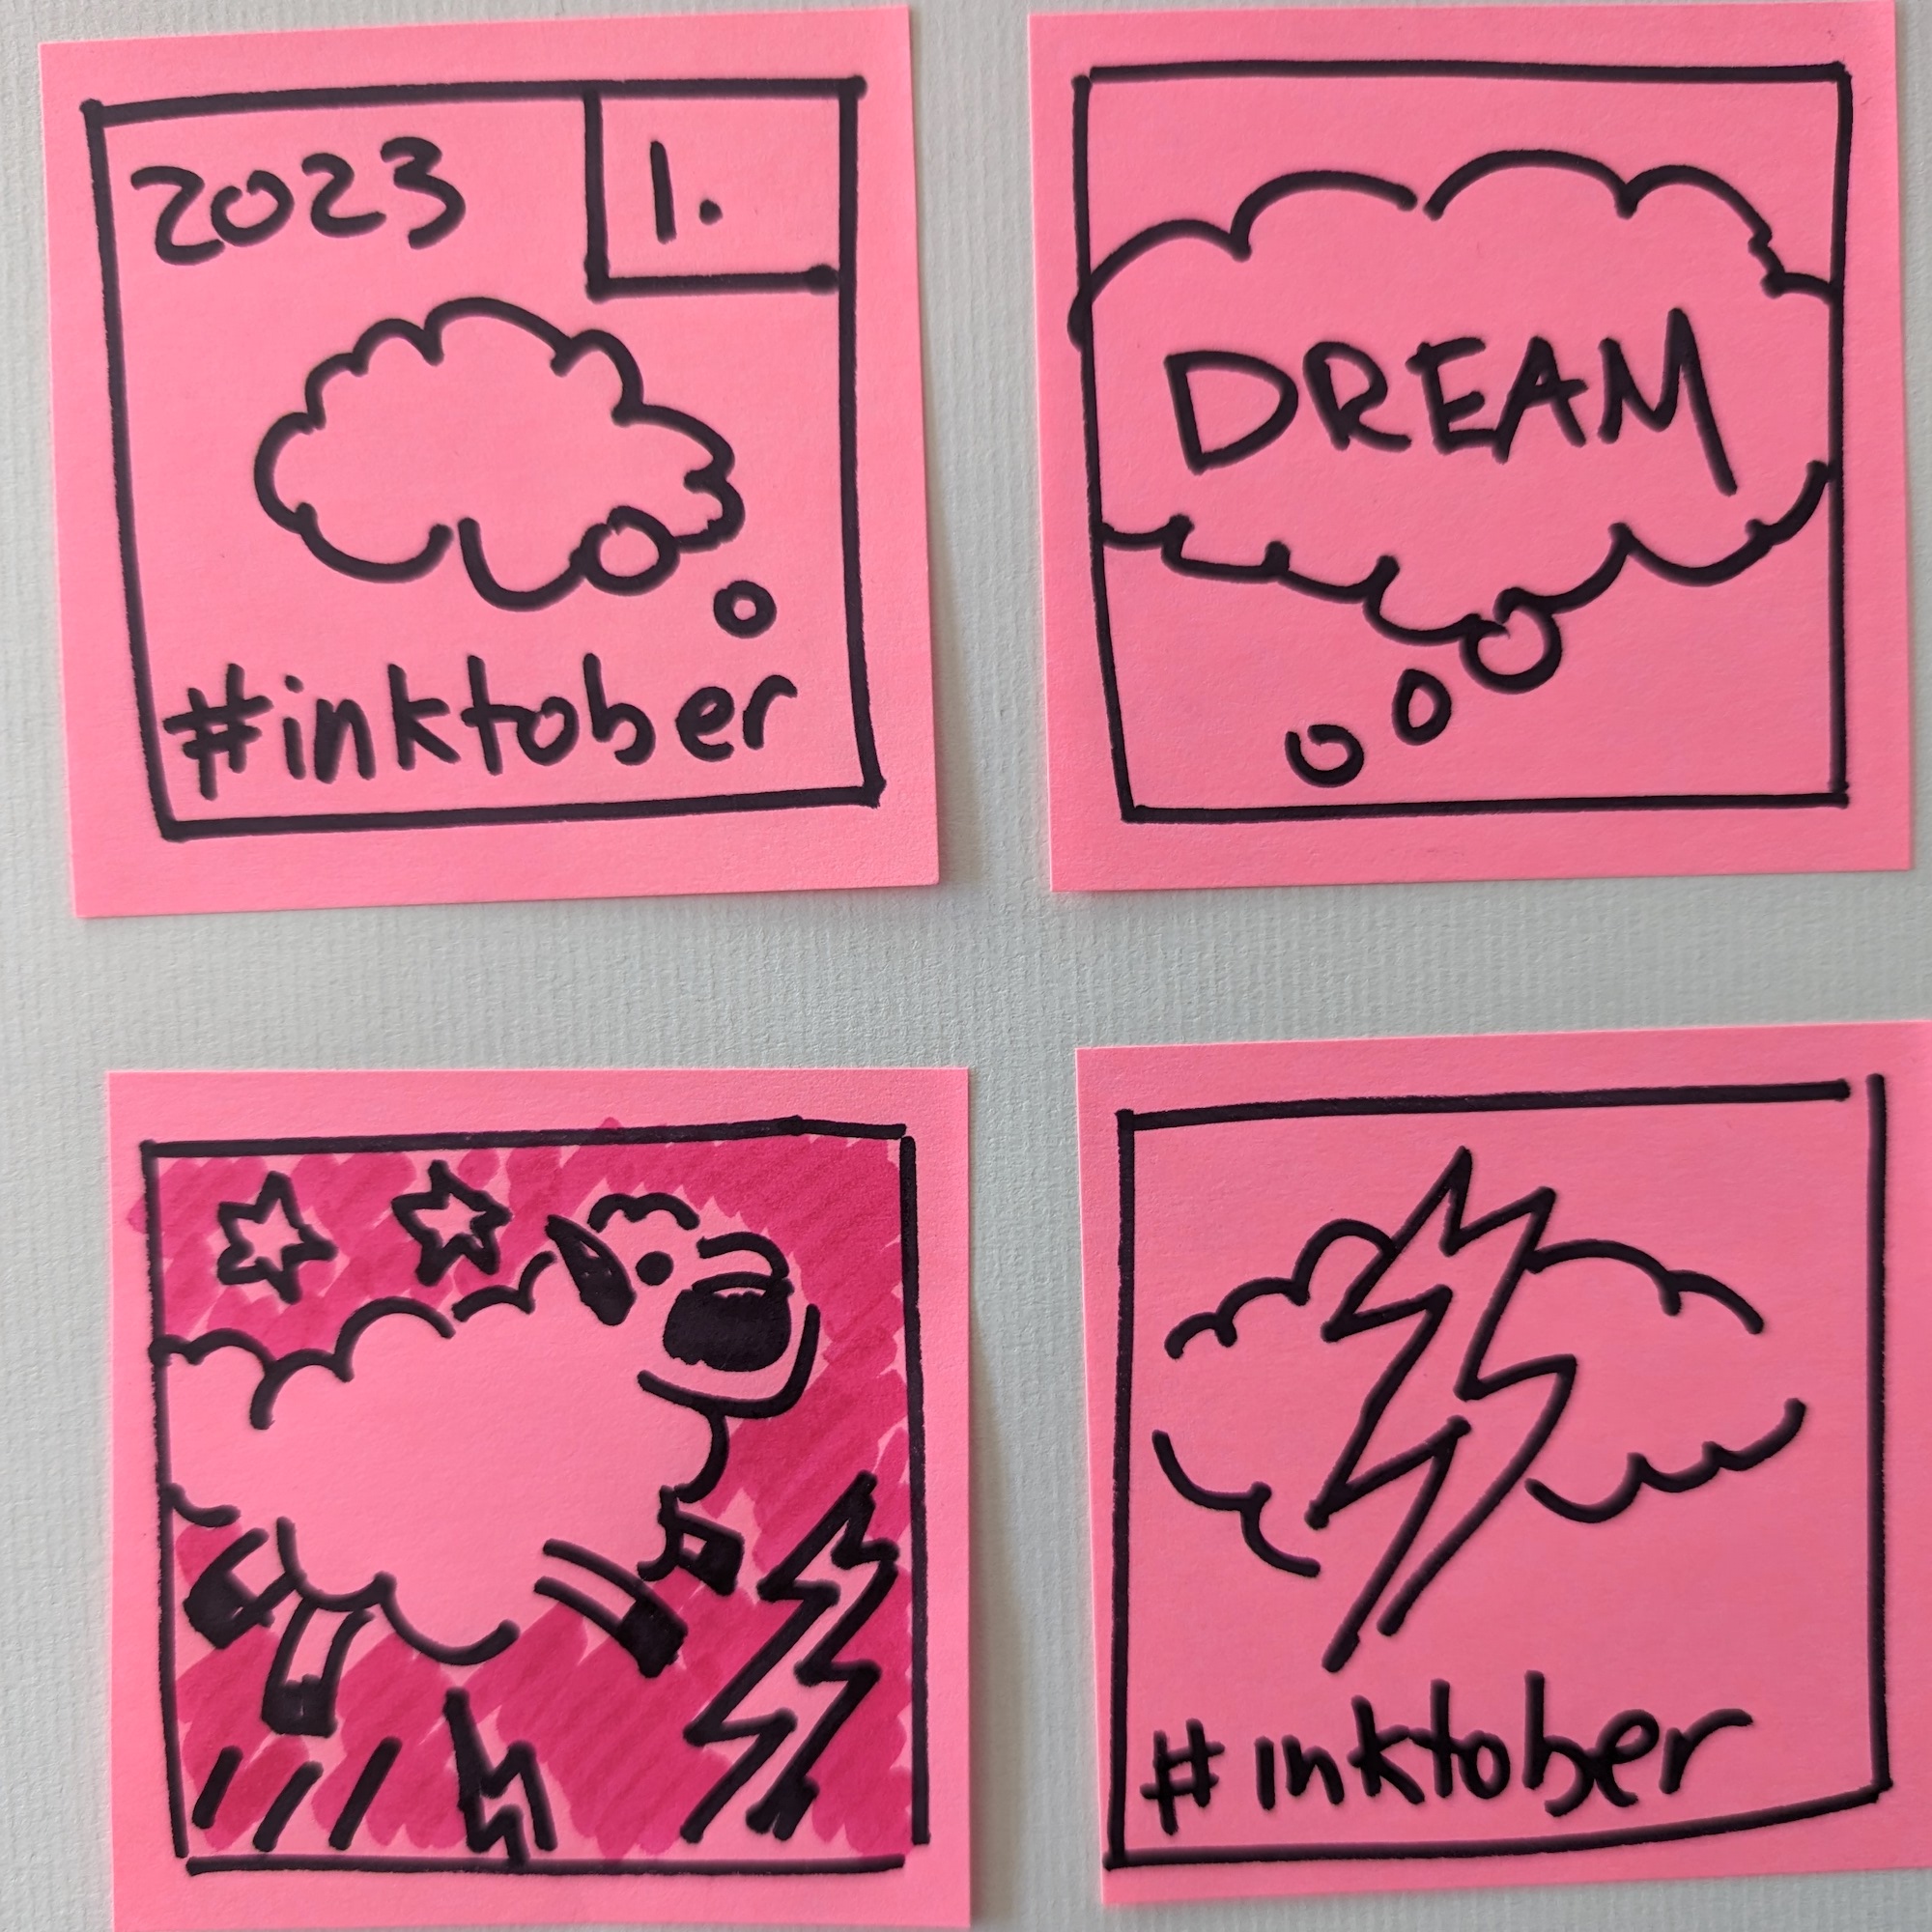 2023 1.
#inktober
DREAM
#inktober